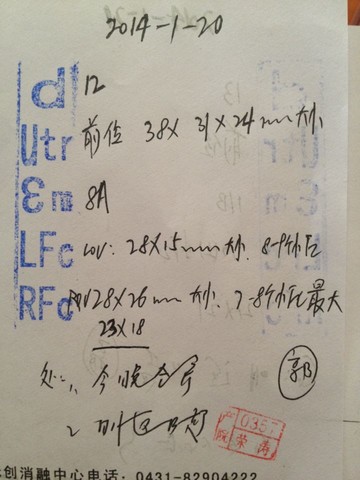 2014-1-20
d 12
Utr 前位 38×31×24mm大小
Em 8A
LFc LOV: 28×15mm大小. 8-9个卵泡
RFc ROV 28×26mm大小. 7-8个卵泡 最大
23×18
处: 1. 今晚
郭
2
0357
产院 荣涛
创消融中心电话:0431-82904222